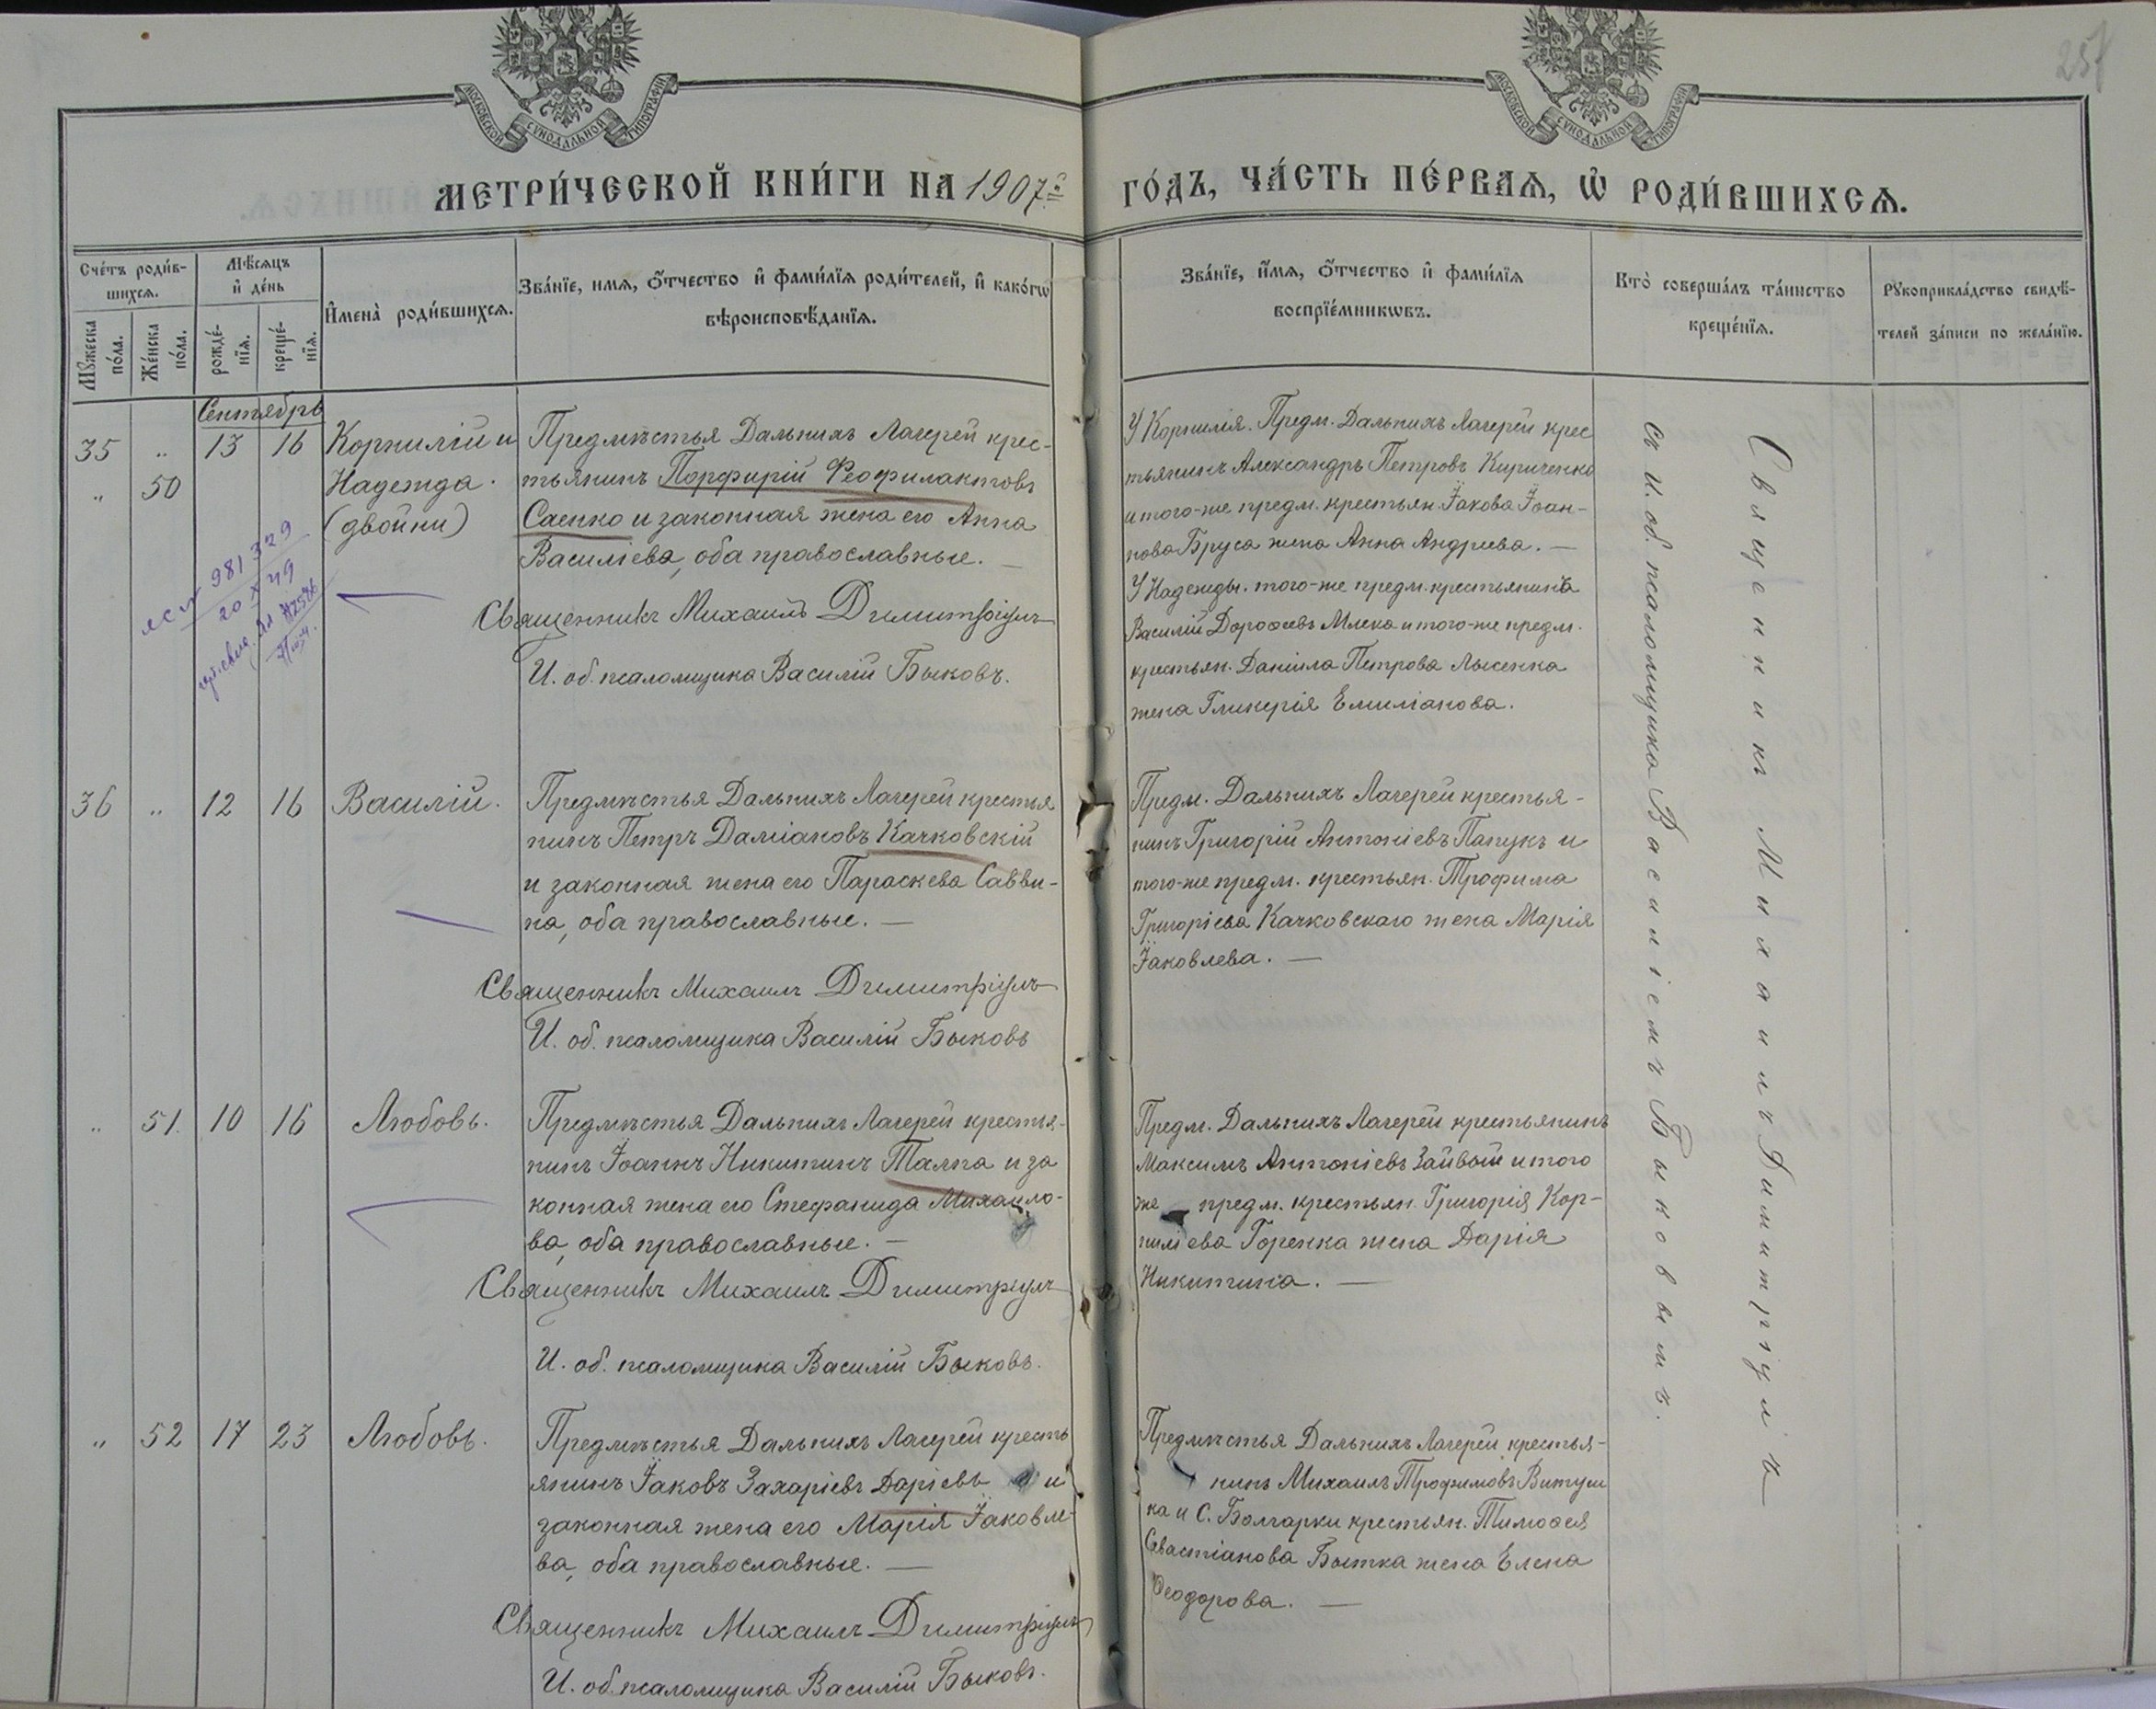 257
МОСКОВСКОЙ СУНОДАЛЬНОЙ ТИПОГРАФІИ
МОСКОВСКОЙ СУНОДАЛЬНОЙ ТИПОГРАФІИ
МЕТРИ́ЧЕСКОЙ КНИ́ГИ НА 1907й ГО́ДЪ, ЧА́СТЬ ПЕ́РВАѦ, Ѽ РОДИ́ВШИХСѦ.
Сче́тъ роди́в-
шихсѧ.
Мꙋ́жеска по́ла.
Же́нска по́ла.
Мѣ́сѧцъ
и҆ де́нь
рожде́-
нїѧ.
креще́-
нїѧ.
И҆мена̀ роди́вшихсѧ.
Зва́нїе, имѧ, ѻ҆́тчество и҆ фами́лїѧ роди́телей, и҆ како́гѡ
вѣроисповѣ́данїѧ.
Зва́нїе, и҆́мѧ, ѻ҆́тчество и҆ фами́лїѧ
воспрїе́мникѡвъ.
Кто̀ соверша́лъ та́инство
креще́нїѧ.
Рꙋкоприкла́дство свидѣ́-
телей за́писи по жела́нїю.
Сентябрь
35 „ 13 16 Корнилій и
„ 50 Надежда.
(двойни)
Предмѣстья Дальнихъ Лагерей крес-
тьянинъ Порфирій Феофилактовъ
Саенко и законная жена его Анна
Василіева, оба православные. —
Священникъ Михаилъ Димитріулъ
И. об. псаломщика Василій Быковъ.
981329
20 X 49
У Корнилія. Предм. Дальнихъ Лагерей крес
тьянинъ Александръ Петровъ Кириченко
и того-же предм. крестьян. Іакова Іоан-
нова Бруса жена Анна Андреева. —
У Надежды. того-же предм. крестьянинъ
Василій Дорофеевъ Млека и того-же предм.
крестьян. Даніила Петрова Лысенка
жена Гликерія Емиліанова.
36 „ 12 16 Василій.
Предмѣстья Дальнихъ Лагерей крестья
нинъ Петръ Даміановъ Качковскій
и законная жена его Параскева Савви-
на, оба православные. —
Священникъ Михаилъ Димитріулъ
И. об. псаломщика Василій Быковъ
Предм. Дальнихъ Лагерей крестья-
нинъ Григорій Антоніевъ Папукъ и
того-же предм. крестьян. Трофима
Григоріева Качковскаго жена Марія
Іаковлева. —
„ 51. 10 16 Любовь.
Предмѣстья Дальнихъ Лагерей крестья-
нинъ Іоаннъ Никитинъ Талпа и за
конная жена его Стефанида Михаило-
ва, оба православные. —
Священникъ Михаилъ Димитріулъ
И. об. псаломщика Василій Быковъ.
Предм. Дальнихъ Лагерей крестьянинъ
Максимъ Антоніевъ и того
же предм. крестьян. Григорія Кор-
ниліева Горенка жена Дарія
Никитина. —
„ 52 17 23 Любовь.
Предмѣстья Дальнихъ Лагерей кресть
янинъ Іаковъ Захаріевъ Даріевъ и
законная жена его Марія Іаковле-
ва, оба православные. —
Священникъ Михаилъ Димитріулъ
И. об. псаломщика Василій Быковъ.
Предмѣстья Дальнихъ Лагерей крестья-
нинъ Михаилъ Трофимовъ Витуш
ка и С. Болгарки крестьян. Тимофея
Севастіанова Бытка жена Елена
Феодорова. —
Священникъ Михаилъ Димитріулъ
съ И. об. псаломщика Василіемъ Быковымъ.